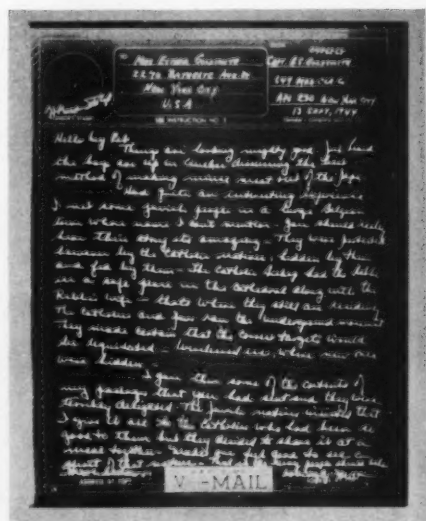 Mrs Esther Goldsmith
Capt. R.S. Goldsmith
2270 Ave.
New York City
APO 230 New York City
U.S.A
13 SEPT, 1944
SEE INSTRUCTION NO. 2
Hello big Pal.
Things are looking mighty good Just heard
the boys are up in discussing the best
method of making mince meat out of the Japs.
Had quite an interesting experience
I met some Jewish people in a large Belgian
town whose name I can't mention - You should really
hear their story its amazing - They were protected
by the Catholic nations; hidden by them
and fed by them - The Catholic Bishop had the Rabbi
in a safe place in the cathedral along with the
Rabbi's wife - that's where they still are residing
The Catholics and Jews ran the underground movement
They made certain that the correct targets would
be liquidated - aid, where new ones
were hidden.
I gave them some of the contents of
my packages that you had sent and they were
terribly delighted. The Jewish insisted that
I give it all to the Catholics who had been so
good to them but they decided to share it at a
meal together - Makes you feel good to see an
of that nature - that
V-MAIL